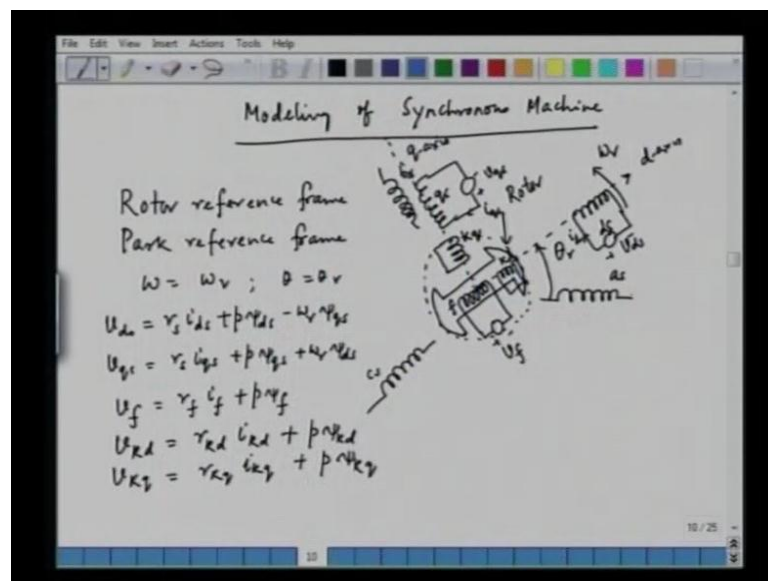 File Edit View Insert Actions Tools Help
Modeling of Synchronous Machine
q-axis
d-axis
ωr
Rotor reference frame
Park reference frame
ω = ωr ; θ = θr
vds = rs ids + pψds - ωr ψqs
vqs = rs iqs + pψqs + ωr ψds
vf = rf if + pψf
vKd = rKd iKd + pψKd
vKq = rKq iKq + pψKq
bs
qs
vqs
+
iqs
Rotor
Kq
Kd
f
+
vf
ids
ds
+
vds
θr
as
cs
10 / 25
10